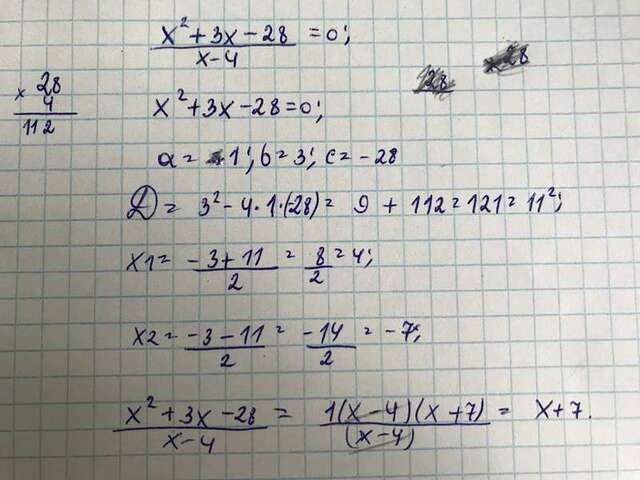 x² + 3x − 28 / x − 4 = 0;
x 28
4
112
x² + 3x − 28 = 0;
a = 1; b = 3; c = − 28
D = 3² − 4 · 1 · (−28) = 9 + 112 = 121 = 11²;
x1 = −3 + 11 / 2 = 8 / 2 = 4;
x2 = −3 − 11 / 2 = −14 / 2 = −7;
x² + 3x − 28 / x − 4 = 1(x − 4)(x + 7) / (x − 4) = x + 7.